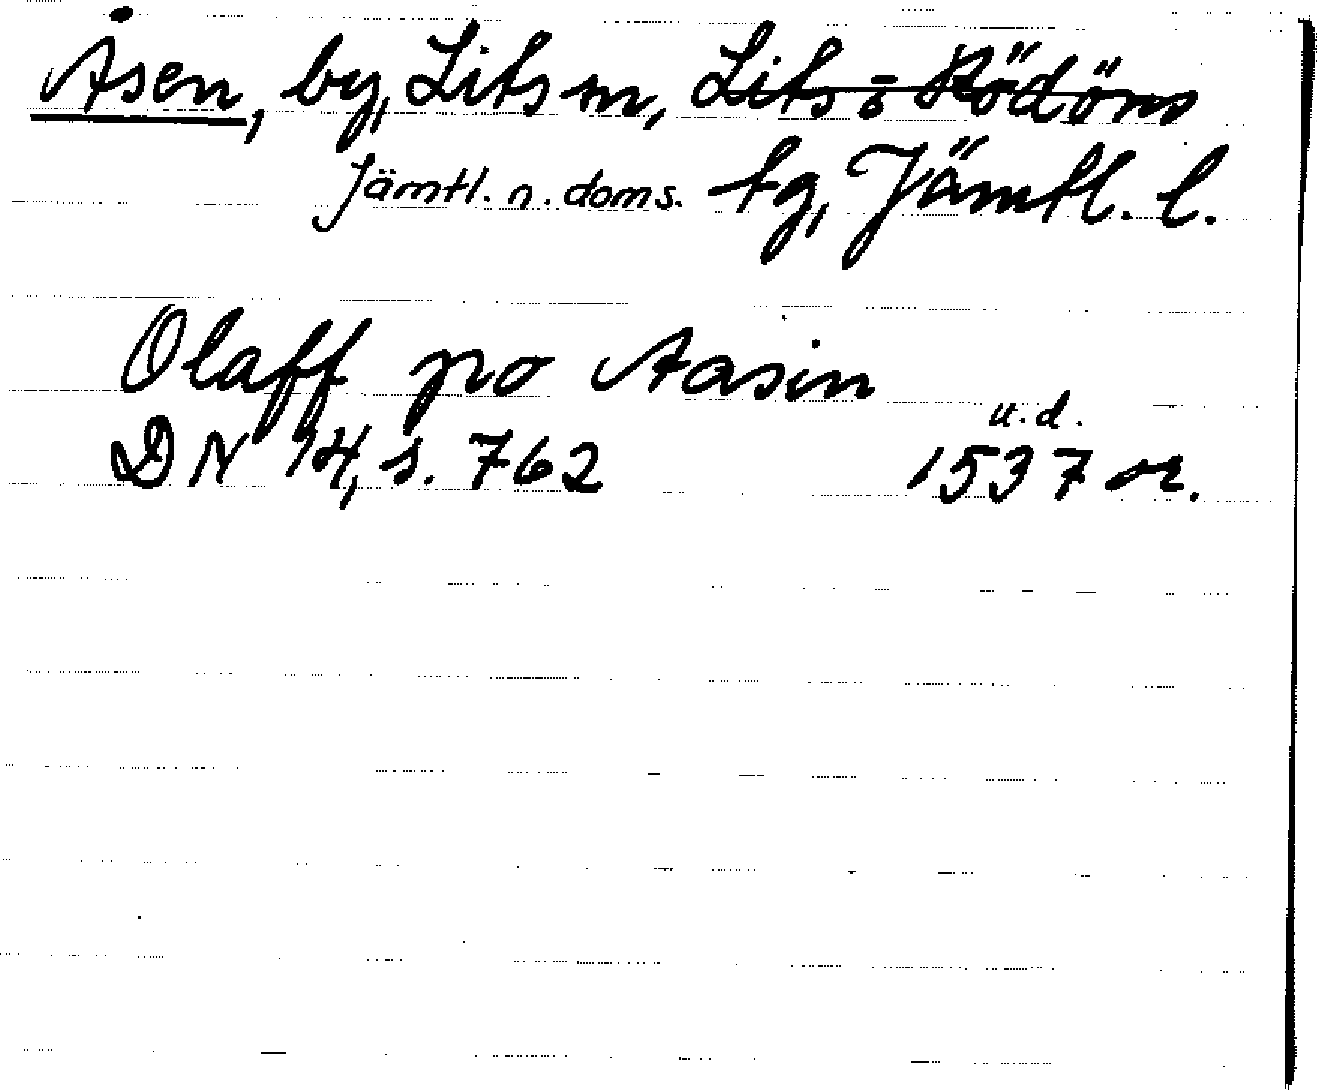 Åsen, by, Lits sn, Lits o Rödöns
Jämtl. n. doms. tg, Jämtl. l.
Olaff po Aasin
u.d.
DN 14, s. 762 1537 or.